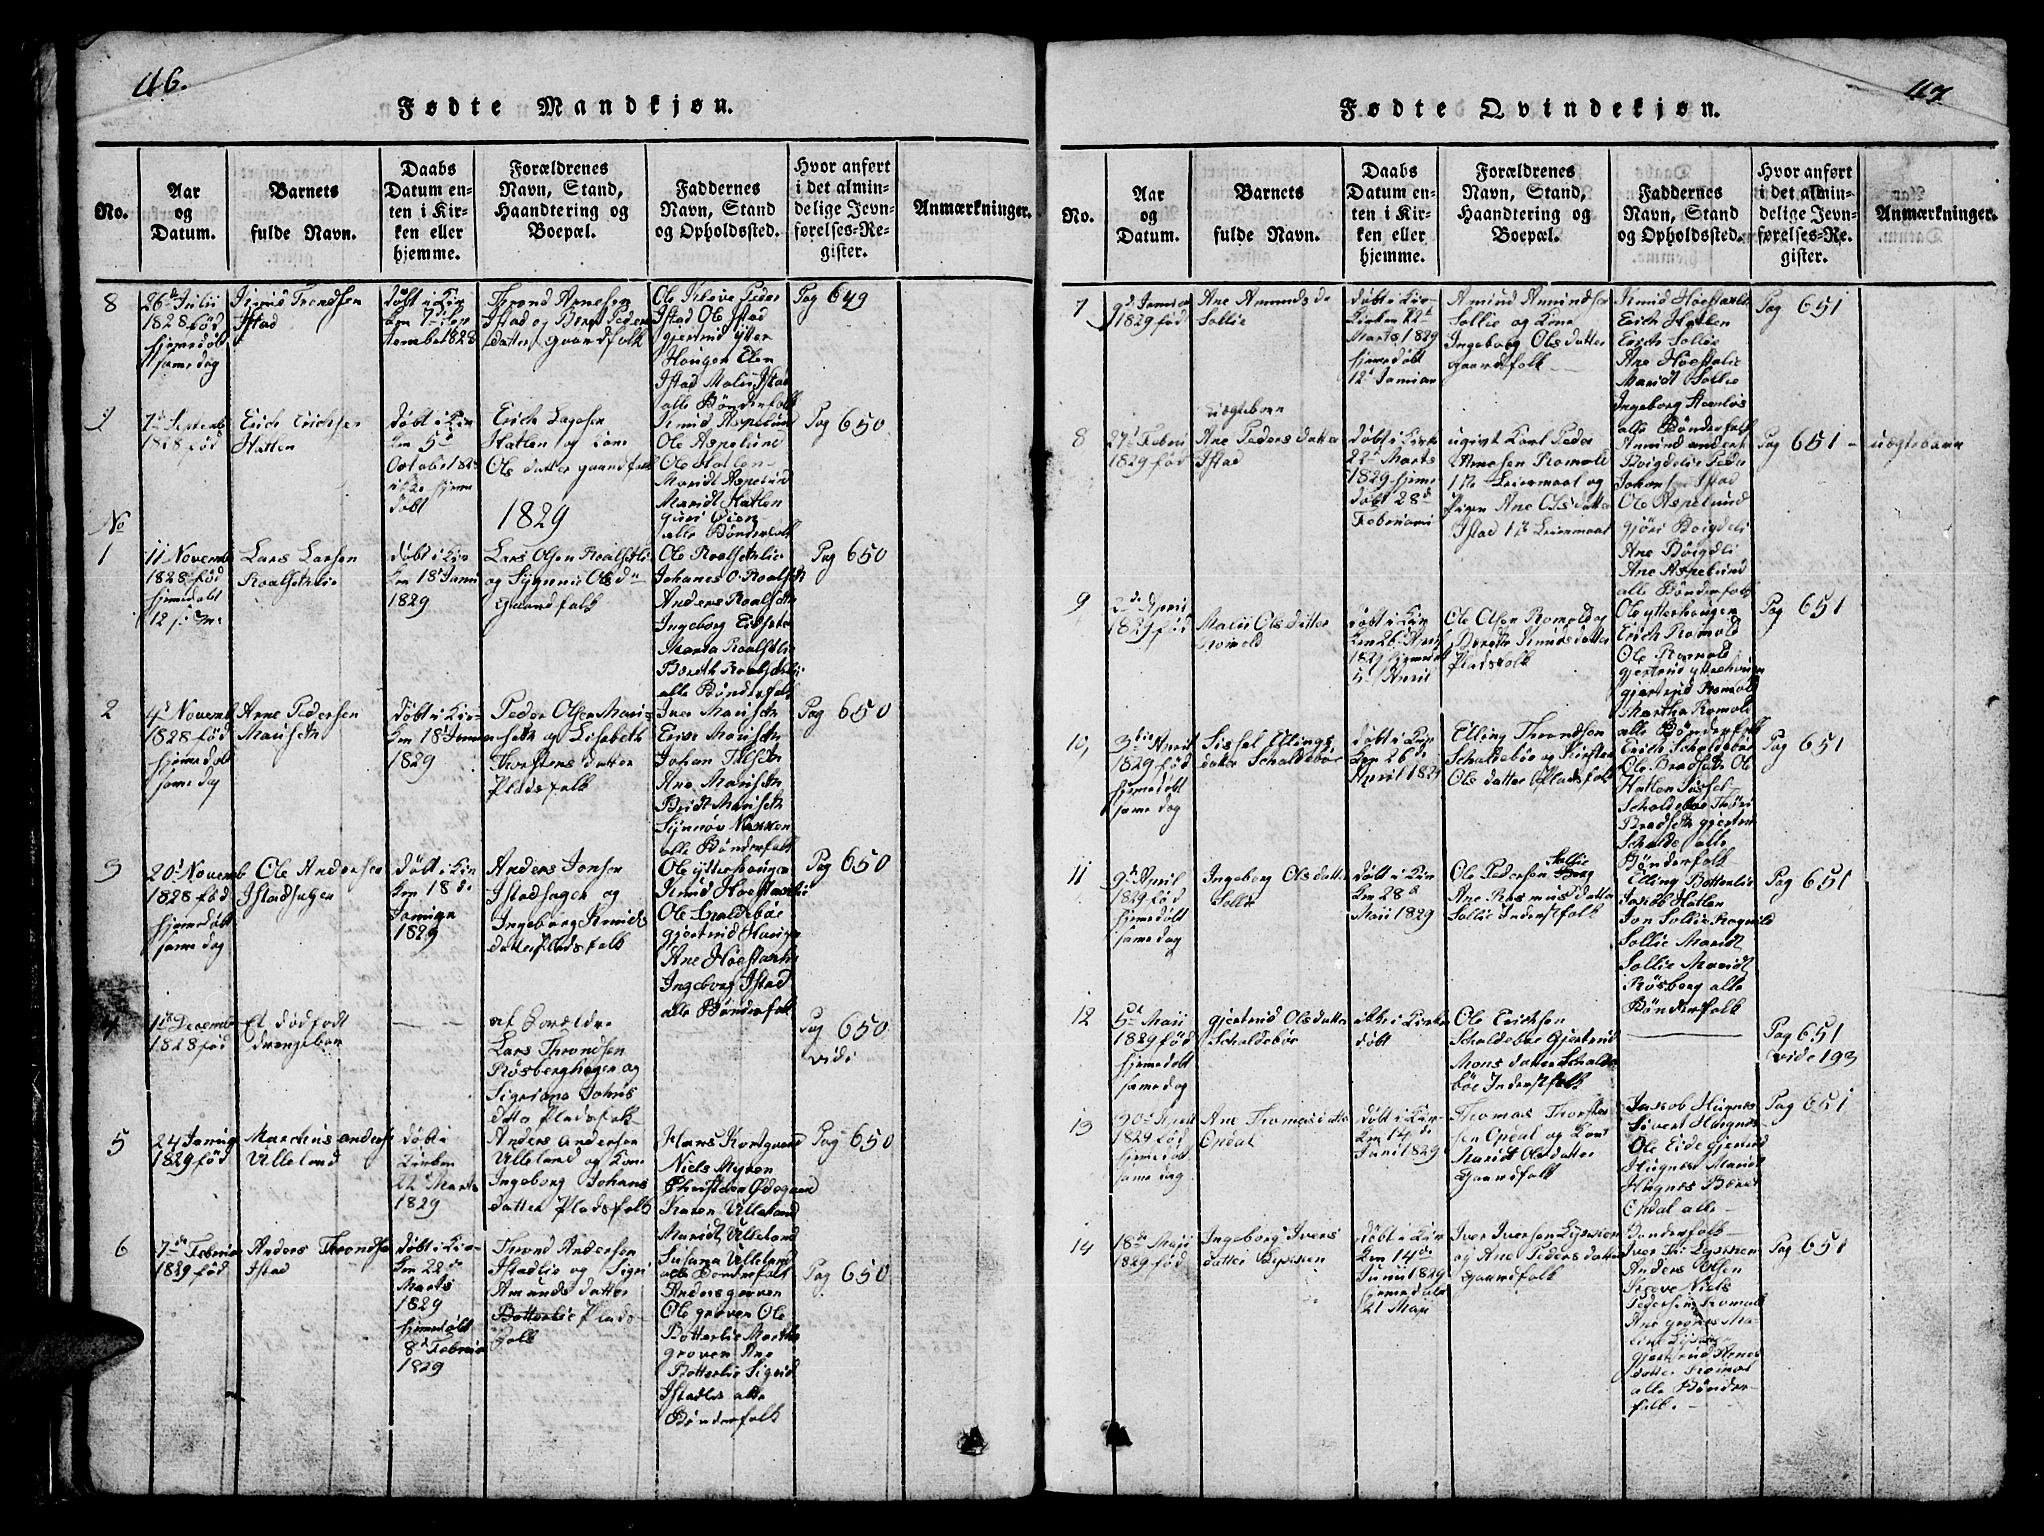 46.
Fødte Mandkjøn.
No.
Aar
og
Datum.
Barnets
fulde Navn.
Daabs
Datum en-
ten i Kir-
ken eller
hjemme.
Forældrenes
Navn, Stand,
Haandtering og
Boepæl.
Faddernes
Navn, Stand
og Opholdssted.
Hvor anført
i det almin-
delige Jevn-
førelses-Re-
gister.
Anmærkninger.
8
26de Julii
1828 fød
hjemedøbt
same dag
Knud Trondsen
Istad
døbt i Kir
ken 7de Sep
tember 1828
Thrond Arnesen
Istad og Beret Peders
datter gaardfolk
Ole Kleve Peder
Istad Ole Istad
gjertrud ytter
Haugen Elen
Istad Malii Istad
alle Bønderfolk
Pag 649
9
7de Septemb
1828 fød
Erich Erichsen
Hatlen
døbt i Kir
ken 5d
October 1828
ikke hjeme
døbt
Erich Lagesen
Hatlen og Kone
Ols datter gaardfolk
Knud Aspelund
Ole Aspelund
Ole Hatlen
Maridt Aspelund
Maridt Hatlen
guri Øien
alle Bønderfolk
Pag 650
1829
No
1
11 Novemb
1828 fød
hjemedøbt
Lars Larsen
Roalsetlie
døbt i Kir
ken 18d Janu
1829
Lars Olsen Roalsetli
og Sÿgnie Olsd
gaardfolk
Ole Roalsetlie
Johanes O. Roalset
Anders Roalseth
Ingeborg Eidseter
Maria Roalsetlie
Bereth Roalsetlie
alle Bønderfolk
Pag 650
2
4d Novemb
1828 fød
hjemedøbt
same dag
Arne Pedersen
Mariseth
døbt i Kir
ken 18d Januar
1829
Peder Olsen Mari
seth og Lisabeth
Thorstens datter
Pladsfolk
Iver Mariseth
Erik Mariseth
Johan Tilseth
Ane Mariseth
Bridt Mariseth
Sÿnnøv Nakken
alle Bønderfolk
Pag 650
3
20d Novemb
1828 fød
hjemedøbt
same dag
Ole Andersen
Istadhagen
døbt i Kir
ken 18 de
Januar
1829
Anders Jonsen
Istadhagen og
Ingeborg Knuds
datter Pladsfolk
Ole ÿtterhaugen
Knud Hoestaklie
Ole Schaldebøe
gjertrud Hauge
Ane Hoestaklie
Ingeborg Istad
alle Bønderfolk
Pag 650
4
1de Decemb
1828 fød
Et dødfødt
drengebarn
af Forældre
Lars Throndsen
Røsberghagen og
Sigriana Johans
datter Pladsfolk
Pag 650
vide
5
24 Janua
1829 fød
Marchus anders
Ulleland
døbt i
Kirken
22d Marts
1829
Anders Andersen
Ulleland og Kone
Ingeborg Johans
datter Pladsfolk
Hans Kortgaard
Niels Mÿren
Christen Ødegaard
Karen Ulleland
Maridt Ulleland
Susana Ulleland
alle Bønderfolk
Pag 650
6
7de Februa
1829 fød
Anders Throndsen
Istad
døbt i Kir
ken 22de
Marts
1829
hjemedøbt
8d Februa
1829
Thrond Andersen
Istadlie og Sigri
Amunds datter
Botterlie Plads
folk
Anders groven
Ole groven Ole
Botterlie Marthe
groven Ane
Botterlie Sigrid
Istadlie alle
Bønderfolk
Pag 650
47
Fødte Qvindekjøn.
No.
Aar
og
Datum.
Barnets
fulde Navn.
Daabs
Datum en-
ten i Kir-
ken eller
hjemme.
Forældrenes
Navn, Stand,
Haandtering og
Boepæl.
Faddernes
Navn, Stand
og Opholdssted.
Hvor anført
i det almin-
delige Jevn-
førelses-Re-
gister.
Anmærkninger.
7
9d Janua
1829 fød
Ane Amunds da
Sollie
døbt i Kir
Kirken 22d
Marts 1829
hjemedøbt
12d Januar
Amund Amundsen
Sollie og Kone
Ingeborg Ols datter
gaardfolk
Knud Hoestaklie
Erich Hatlen
Erich Sollie
Ane Hoestaklie
Maridt Sollie
Ingeborg Hemlos
alle Bønderfolk
Pag 651
8
27d Februa
1829 fød
uægtebarn
Ane Peders datter
Istad
døbt i Kirk
22d Marts
1829 hjeme
døbt 28d
Februarii
ugivt Karl Peder
Amosen Romold
1te Leiermaal og
Pigen Ane Ols datter
Istad 1te Leiermaal
Amund anders
Boigdelie Peder
Johansen Istad
Ole Aspelund
gjøri Boigdeli
Ane Boigdeli
Ane Aspelund
alle Bønderfolk
Pag 651
uægtebarn
9
2de April
1829 fød
Malii Ols datter
Romold
døbt i Kir
ken 26 April
1829 hjemedøbt
5d April
Ole Olsen Romold og
Bereth Knuds datter
Pladsfolk
Ole ytterhaugen
Erich Romold
Ole Romold
gjertrud ytterhaugen
gjertrud Romold
Martha Romold
alle Bønderfolk
Pag 651
10
3die April
1829 fød
hjemedøbt
same dag
Sissel Ellings
datter Schaldebøe
døbt i Kir
ken 26 de
April 1829
Elling Throndsen
Schaldebøe og Kirsten
Ols datter Pladsfolk
Erich Schaldebøe
Ole Bradseth Ole
Hatlen Sissel
Schaldebøe Thøri
Bradseth gjertru
Schalde alle
Bønderfolk
Pag 651
11
9d April
1829 fød
hjemedøbt
same dag
Ingeborg Ols datter
Sollie
døbt i Kir
ken 28d
Maii 1829
Ole Pedersen Sollie
Ane Rasmus datter
Sollie Inderstfolk
Elling Botterlie
Jacob Hatlen
Jon Sollie Ragnild
Sollie Maridt
Sollie Maridt
Røsberg alle
Bønderfolk
Pag 651
12
5de Maii
1829 fød
hjemedøbt
same dag
gjertrud Ols datter
Schaldebøe
ikke i Kirke
døbt
Ole Erichsen
Schaldebøe Gjertrud
Mons datter Schalde
bøe Inderstfolk
Pag 651
vide 193
13
30d April
1829 fød
hjemedøbt
same dag
Ane Thomas datter
Opdal
døbt i Kir
ken 14 de
Junii 1829
Thomas Thorsten
sen Opdal og Kone
Maridt Ols datter
Gaardfolk
Jacob Hugnes
Sivert Hugnes
Ole Eide Gjertrud
Hugnes Maridt
Hugnes Beret
Opdal alle
Bønderfolk
Pag 651
14
18de Maii
1829 fød
Ingeborg Ivers
datter Lÿkken
døbt i Kir
ken 14de
Junii 1829
hjemedøbt
21 Maji
Iver Iversen Lÿkken
og Ane Peders datter
Gaardfolk
Iver Lÿkken
Anders Olsen
Stove Niels
Pedersen Tromald
alle Bønder
folk.
Pag 651